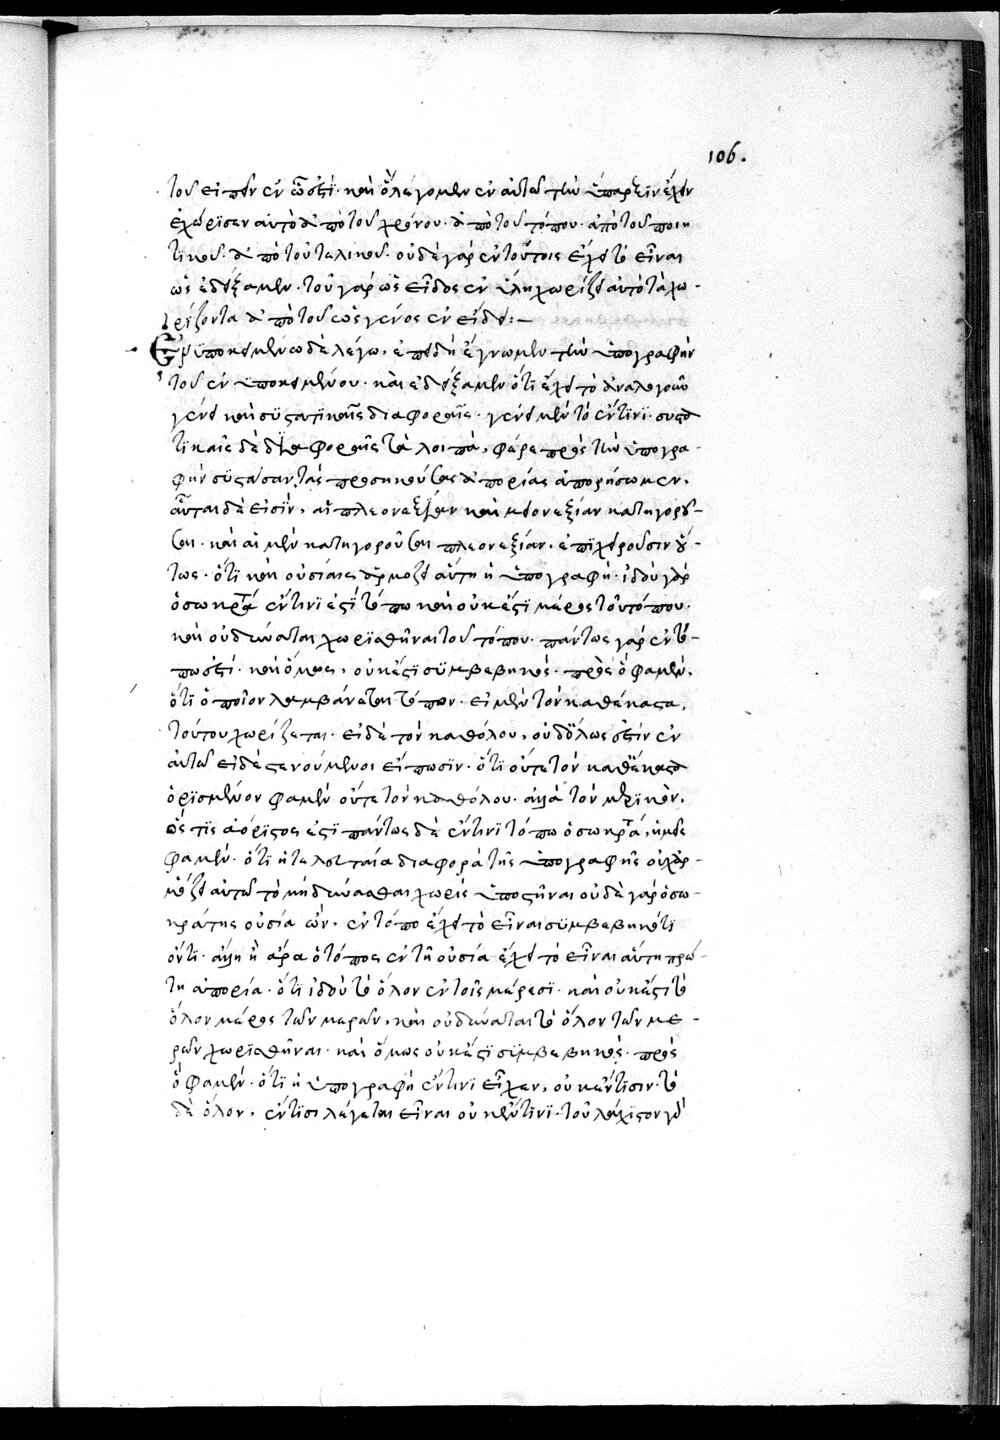 106.
του εἰπεῖν ἐν ὧ ἐστί· καὶ ὃ λέγομεν ἐν αὐτῶ τὴν ὕπαρξιν ἔχειν
ἐχώρισεν αὐτὸ ἀπὸ τοῦ χρόνου· ἀπὸ τοῦ τόπου· ἀπὸ τοῦ ποιη
τικοῦ· ἀπὸ τοῦ τελικοῦ· οὐδὲ γὰρ ἐν τούτοις ἔχει τὸ εἶναι
ὡς ἐδείξαμεν· τοῦ γὰρ ὡς εἶδος ἐν ὕλη χωρίζει αὐτὸ τὰ χω-
ρίζοντα ἀπὸ τοῦ ὡς γένος ἐν εἴδει:—
Ἐν ὑποκειμένω δὲ λέγω, ἐπειδὴ ἔγνωμεν τὴν ὑπογραφὴν
τοῦ ἐν ὑποκειμένου· καὶ ἐδείξαμεν ὅτι ἔχει τὸ ἀναλογοῦν
γένει καὶ συστατικαῖς διαφοραῖς· γένει μὲν τὸ ἔν τινι· συστα
τικαῖς δὲ διαφοραῖς τὰ λοιπά, φέρε πρὸς τὴν ὑπογρα-
φὴν συστᾶσαν τὰς προσηκούσας ἀπορίας ἀπορήσωμεν.
αὗται δὲ εἰσϊν, αἱ πλεονεξίαν καὶ μειονεξίαν κατηγοροῦ-
σαι· καὶ αἱ μὲν κατηγοροῦσαι πλεονεξίαν, ἐπιχειροῦσιν οὕ-
τως· ὅτι καὶ οὐσίαις ἁρμόζει αὕτη ἡ ὑπογραφή· ἰδοὺ γὰρ
ὁ σωκράτης ἔν τινι ἐστὶ τόπω καὶ οὐκ ἔστι μέρος τοῦ τόπου·
καὶ οὐ δύναται χωρισθῆναι τοῦ τόπου· πάντως γὰρ ἐν τό-
πω ἐστί· καὶ ὅμως, οὐκ ἔστι συμβεβηκός· πρὸς ὅ φαμεν,
ὅτι ὁ ποῖον λαμβάνεται τόπον· εἰ μὲν τὸν καθέκαστα,
τούτου χωρίζεται· εἰ δὲ τὸν καθόλου, οὐδόλως ἐστὶν ἐν
αὐτῶ εἰ δὲ στενούμενοι εἴπωσιν· ὅτι οὔτε τὸν καθέκαστα
ὁρισμένον φαμὲν οὔτε τὸν καθόλου· ἀλλὰ τὸν μερικόν,
ὥς τις ἀόριστος ἐστὶ πάντως δὲ ἔν τινι τόπω ὁ σωκράτης, ἡμεῖς
φαμέν· ὅτι ἡ τελευταία διαφορὰ τῆς ὑπογραφῆς οὐχ ἁρ-
μόζει αὐτῶ τὸ μὴ δύνασθαι χωρὶς ὑποστῆναι οὐδὲ γὰρ ὁ σω-
κράτης οὐσία ὤν, ἐν τόπο ἔχει τὸ εἶναι συμβεβηκότι
ὄντι· ἀλλ' ἢ ἄρα ὁ τόπος ἐν τῆ οὐσία ἔχει τὸ εἶναι αὕτη πρώ-
τη ἀπορία· ὅτι ἰδοὺ τὸ ὅλον ἐν τοῖς μέρεσϊ· καὶ οὐκ ἔστι τὸ
ὅλον μέρος τῶν μερῶν, καὶ οὐ δύναται τὸ ὅλον τῶν με-
ρῶν χωρισθῆναι· καὶ ὅμως οὐκ ἔστι συμβεβηκός· πρὸς
ὅ φαμεν· ὅτι ἡ ὑπογραφὴ ἔν τινι εἶχεν, οὐκ ἔν τισιν· τὸ
δὲ ὅλον, ἔν τισι λέγεται εἶναι οὐκ ἔν τινϊ· τοῦλάχιστον γὰρ